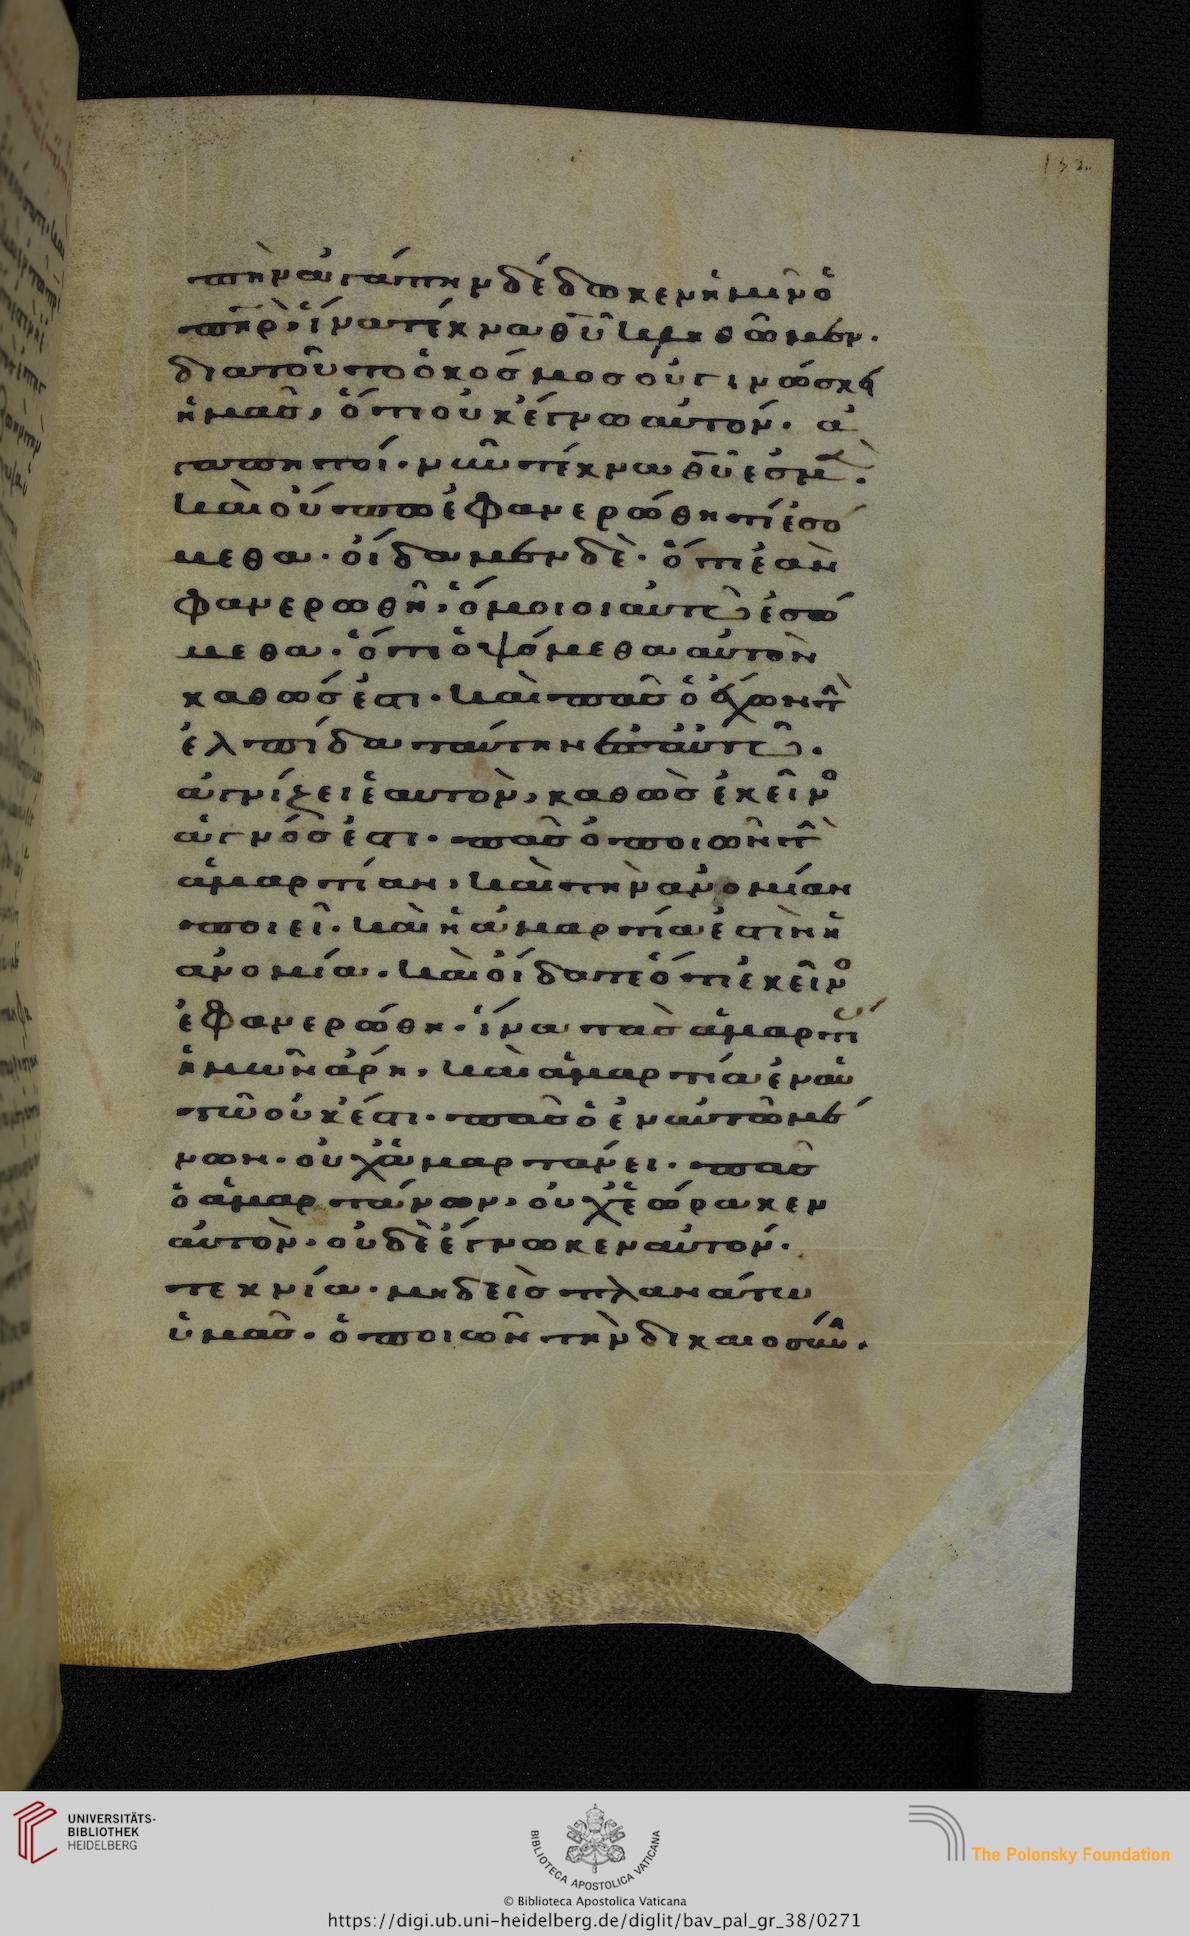 132
πὴν ἀγάπην δέδωκεν ἡμῖν ὁ
πηρ, ἵνα τέκνα θυ κληθῶμεν.
διατοῦτο ὁ κόσμος οὐ γινώσκει
ἡμᾶς, ὅτι οὐκ ἔγνω αὐτόν. ἀ
γαπητοί. νῦν τέκνα θυ ἐσμὲ.
καὶ οὔπω ἐφανερώθη τί ἐσό
μεθα. οἴδαμεν δὲ. ὅτι ἐὰν
φανερωθῆ, ὅμοιοι αὐτῶ ἐσό
μεθα. ὅτι ὀψόμεθα αὐτὸν
καθώς ἐστι. καὶ πᾶς ὁ ἔχων τὴ
ἐλπίδα ταύτην ἐπ αὐτῶ.
ἁγνίζει ἑαυτὸν, καθὼς ἐκεῖνο
ἁγνός ἐστι. πᾶς ὁ ποιῶν τὴ
ἁμαρτίαν, καὶ τὴν ἀνομίαν
ποιεῖ. καὶ ἡ ἁμαρτία ἐστὶν ἡ
ἀνομία. καὶ οἴδατε ὅτι ἐκεῖνο
ἐφανερώθη. ἵνα τὰς ἁμαρτι
ἡμῶν ἄρη, καὶ ἁμαρτία ἐν αὐ
τῶ οὐκ ἔστι. πᾶς ὁ ἐν αὐτῶ μέ
νων. οὐχ ἁμαρτάνει. πᾶς
ὁ ἁμαρτάνων, οὐχ ἑώρακεν
αὐτὸν. οὐδὲ ἔγνωκεν αὐτόν.
τεκνία. μηδεὶς πλανάτω
ὑμᾶς. ὁ ποιῶν τὴν δικαιοσύν.
UNIVERSITÄTS-
BIBLIOTHEK
HEIDELBERG
BIBLIOTECA APOSTOLICA VATICANA
The Polonsky Foundation
© Biblioteca Apostolica Vaticana
https://digi.ub.uni-heidelberg.de/diglit/bav_pal_gr_38/0271